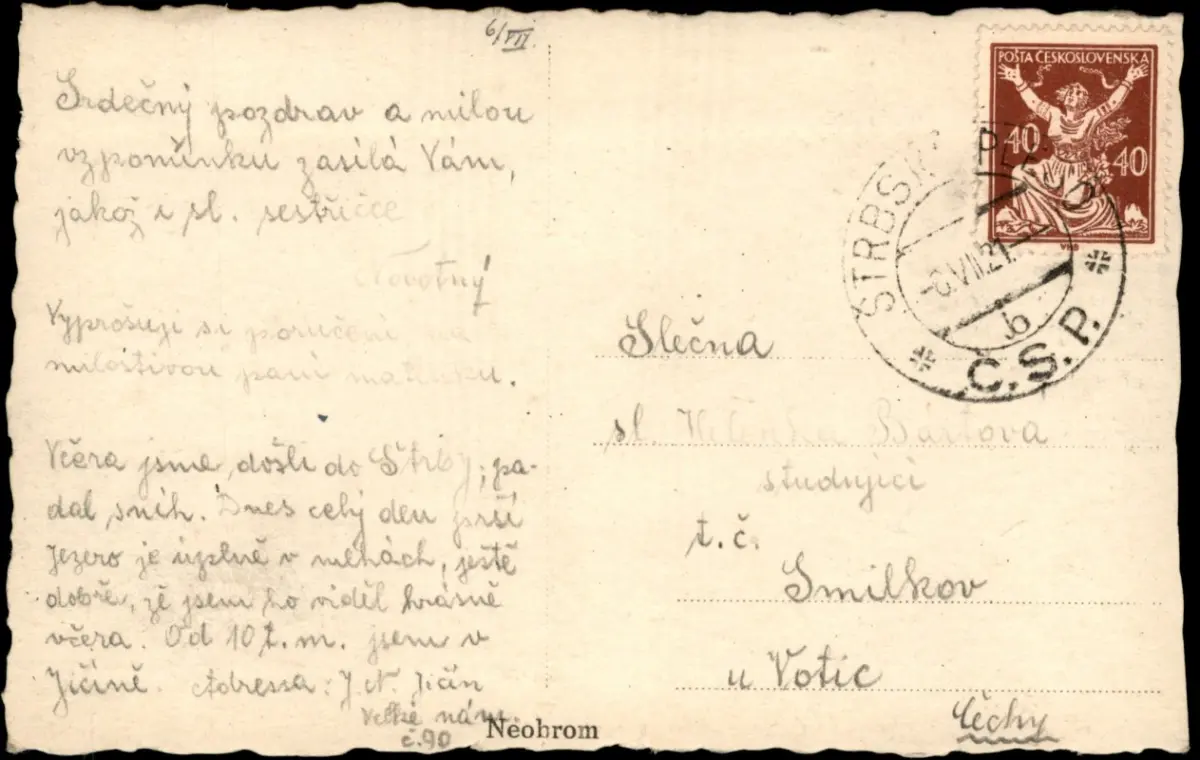 6/VII.
Srdečný pozdrav a milou
vzpomínku zasílá Vám,
jakož i sl. sestřičce
Novotný
Vyprošuji si poručení na
milostivou paní matinku.
Včera jsme došli do Štrby; pa-
dal sníh. Dnes celý den prší
Jezero je úplně v mlhách, ještě
dobře, že jsem ho viděl krásně
včera. Od 10 t. m. jsem v
Jičíně. Adressa: J. N. Jičín
Velké nám.
č. 90
Neobrom
POŠTA ČESKOSLOVENSKA
40 40
ŠTRBSKÉ PLESO
6.VII.21
b
Č.S.P.
Slečna
sl. Bártova
studující
t.č.
Smilkov
u Votic
Čechy